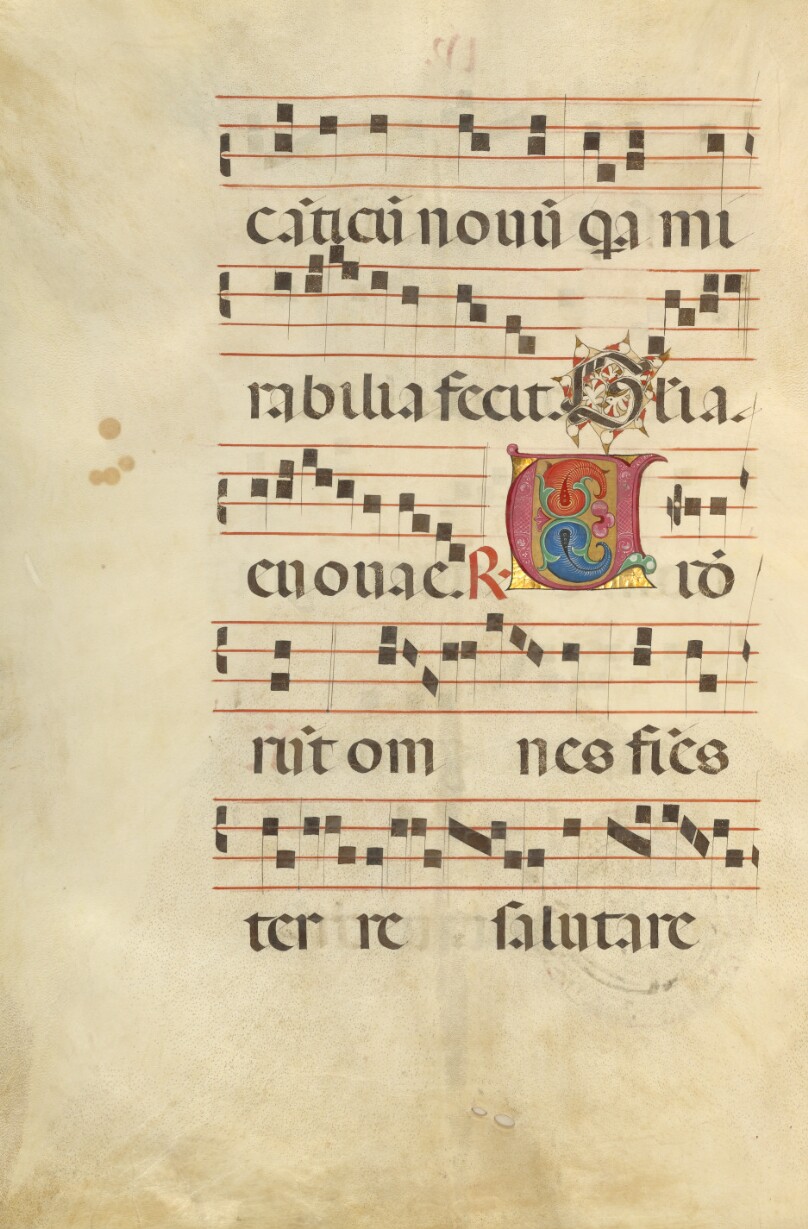 cāticū nouū qa mi
rabilia fecit. Gria.
euouae. R. Uidē
rūt om nes fies
ter re salutare